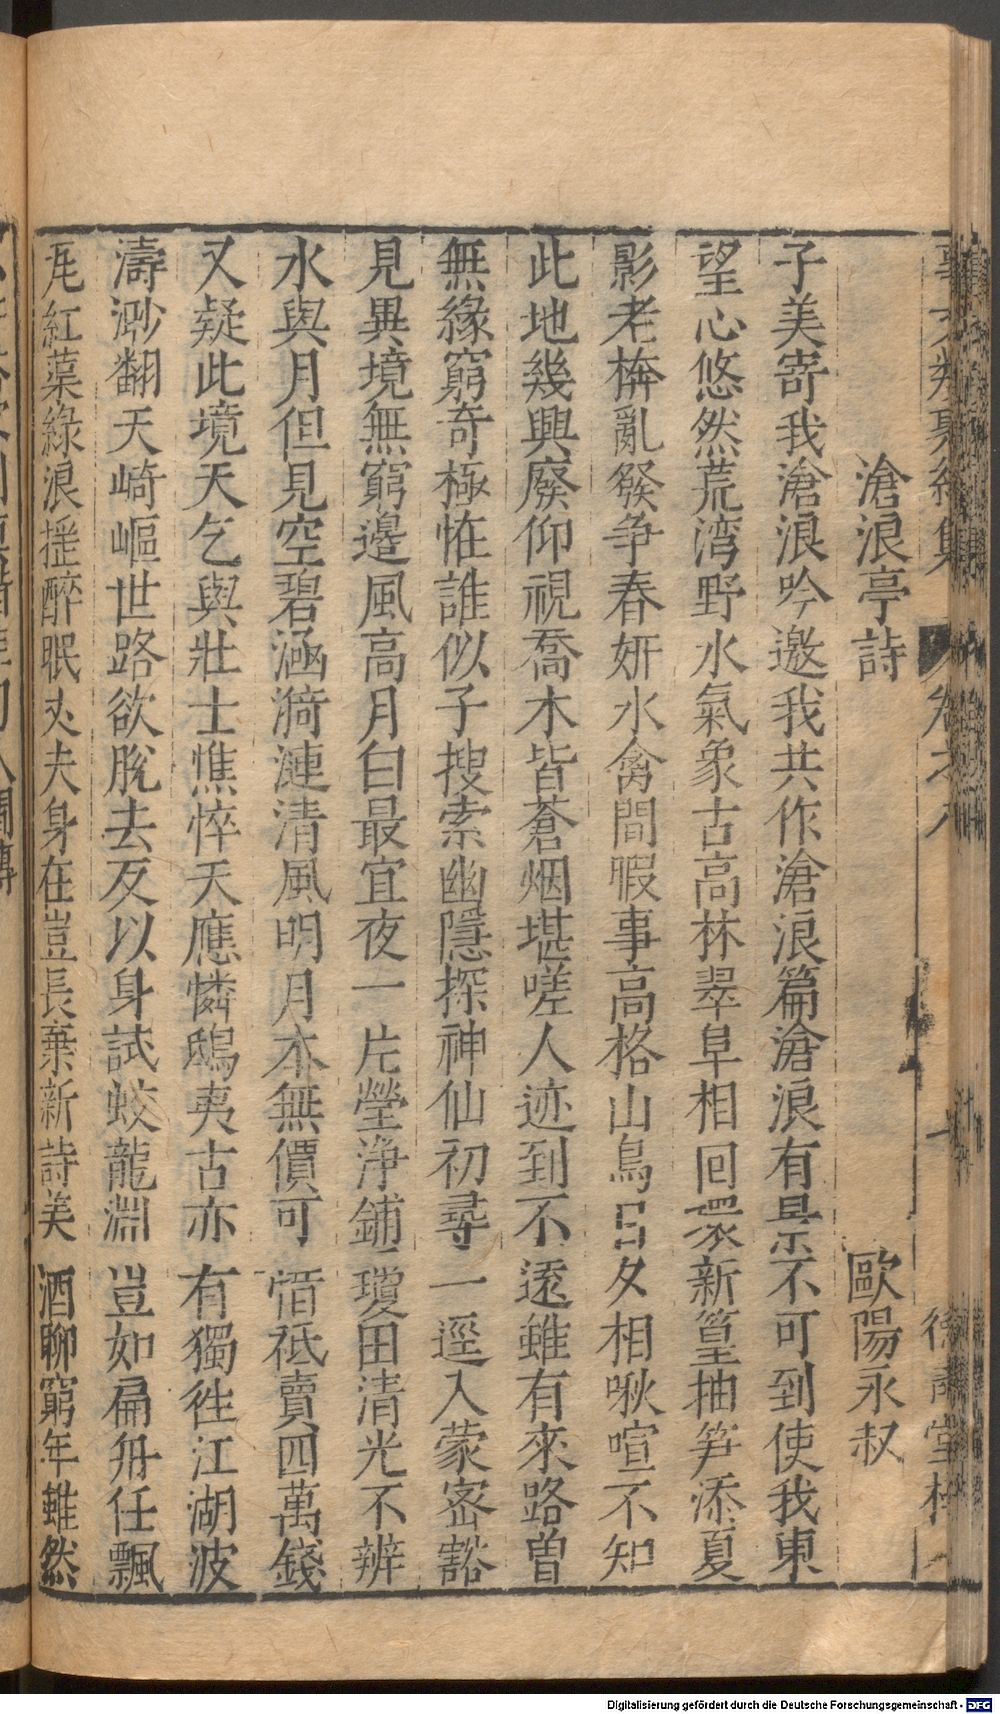 滄浪亭詩 歐陽永叔
子美寄我滄浪吟邀我共作滄浪篇滄浪有景不可到使我東
望心悠然荒湾野水氣象古高林翠阜相回環新篁抽笋添夏
影老枿亂發争春妍水禽間暇事高格山鳥日夕相啾喧不知
此地幾興廢仰視喬木皆蒼烟堪嗟人迹到不逺雖有來路曽
無緣窮奇極恠誰似子搜索幽隱探神仙初尋一逕入蒙宻豁
見異境無窮邉風高月白最宜夜一片瑩浄鋪瓊田清光不辨
水與月但見空碧涵漪漣清風明月本無價可惜祗賣四萬錢
又疑此境天乞與壯士憔悴天應憐鴟夷古亦有獨徃江湖波
濤渺翻天崎嶇世路欲脫去反以身試蛟龍淵豈如扁舟任飄
紅蕖綠浪揺醉眠丈夫身在豈長棄新詩美酒聊窮年雖然
Digitalisierung gefördert durch die Deutsche Forschungsgemeinschaft - DFG